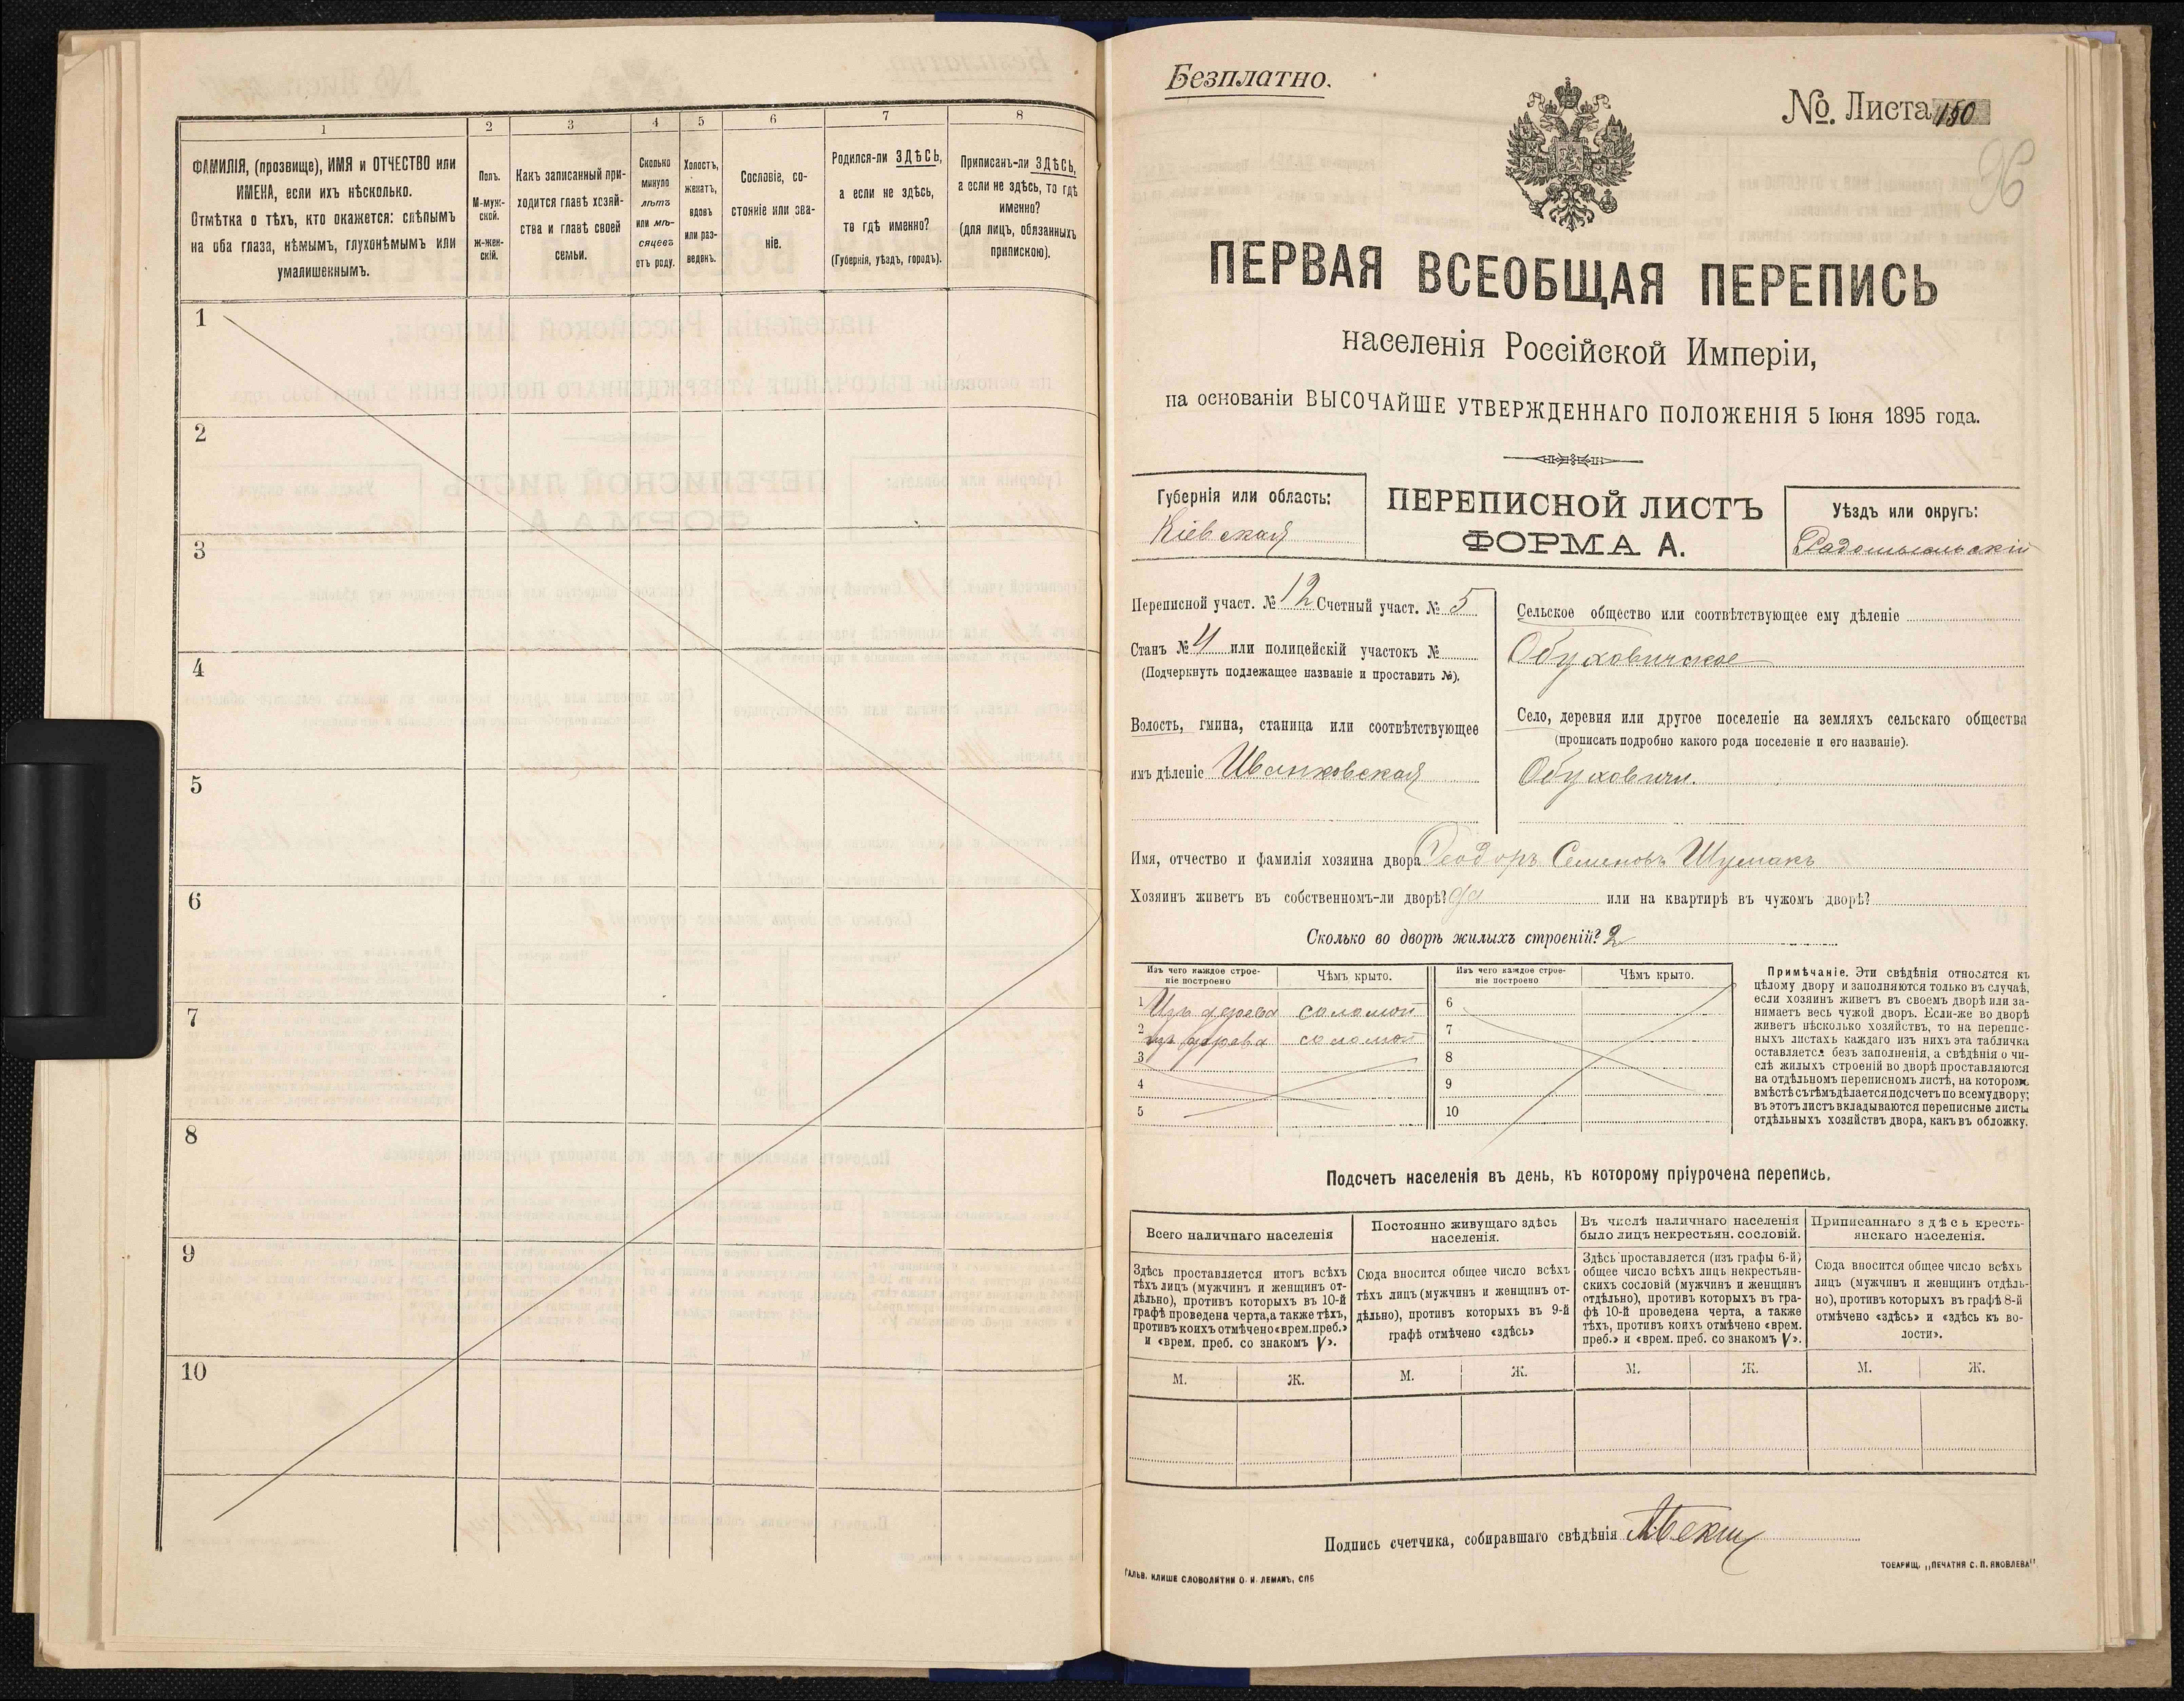 1
2
3
4
5
6
7
8
ФАМИЛІЯ, (прозвище), ИМЯ и ОТЧЕСТВО или
ИМЕНА, если ихъ нѣсколько.
Отмѣтка о тѣхъ, кто окажется: слѣпымъ
на оба глаза, нѣмымъ, глухонѣмымъ или
умалишеннымъ.
Полъ.
М-муж-
ской.
ж-жен-
скій.
Какъ записанный при-
ходится главѣ хозяй-
ства и главѣ своей
семьи.
Сколько
минуло
лѣтъ
или мѣ-
сяцевъ
отъ роду.
Холостъ,
женатъ,
вдовъ
или раз-
веденъ.
Сословіе, со-
стояніе или зва-
ніе.
Родился-ли ЗДѢСЬ,
а если не здѣсь,
то гдѣ именно?
(Губернія, уѣздъ, городъ).
Приписанъ-ли ЗДѢСЬ,
а если не здѣсь, то гдѣ
именно?
(для лицъ, обязанныхъ
припискою).
1
2
3
4
5
6
7
8
9
10
Безплатно.
№. Листа 150
96
ПЕРВАЯ ВСЕОБЩАЯ ПЕРЕПИСЬ
населенія Россійской Имперіи,
на основаніи ВЫСОЧАЙШЕ УТВЕРЖДЕННАГО ПОЛОЖЕНІЯ 5 Іюня 1895 года.
Губернія или область:
Кіевская
ПЕРЕПИСНОЙ ЛИСТЪ
ФОРМА А.
Уѣздъ или округъ:
Радомысльскій
Переписной участ. № 12 Счетный участ. № 5
Станъ № 4 или полицейскій участокъ №
(Подчеркнуть подлежащее названіе и проставить №).
Волость, гмина, станица или соотвѣтствующее
имъ дѣленіе Иванковская
Сельское общество или соотвѣтствующее ему дѣленіе
Обуховичское
Село, деревня или другое поселеніе на земляхъ сельскаго общества
(прописать подробно какого рода поселеніе и его названіе).
Обуховичи.
Имя, отчество и фамилія хозяина двора Феодоръ Семеновъ Шумакъ
Хозяинъ живетъ въ собственномъ-ли дворѣ? да или на квартирѣ въ чужомъ дворѣ?
Сколько во дворѣ жилыхъ строеній? 2
Изъ чего каждое строе-
ніе построено
Чѣмъ крыто.
Изъ чего каждое строе-
ніе построено
Чѣмъ крыто.
1 Изъ дерева соломой
2 изъ дерева соломой
3
4
5
6
7
8
9
10
Примѣчаніе. Эти свѣдѣнія относятся къ
цѣлому двору и заполняются только въ случаѣ,
если хозяинъ живетъ въ своемъ дворѣ или за-
нимаетъ весь чужой дворъ. Если-же во дворѣ
живетъ нѣсколько хозяйствъ, то на перепис-
ныхъ листахъ каждаго изъ нихъ эта табличка
оставляется безъ заполненія, а свѣдѣнія о чи-
слѣ жилыхъ строеній во дворѣ проставляются
на отдѣльномъ переписномъ листѣ, на которомъ
вмѣстѣ съ тѣмъ дѣлается подсчетъ по всему двору;
въ этотъ листъ вкладываются переписные листы
отдѣльныхъ хозяйствъ двора, какъ въ обложку.
Подсчетъ населенія въ день, къ которому пріурочена перепись.
Всего наличнаго населенія
Постоянно живущаго здѣсь
населенія.
Въ числѣ наличнаго населенія
было лицъ некрестьян. сословій.
Приписаннаго здѣсь кресть-
янскаго населенія.
Здѣсь проставляется итогъ всѣхъ
тѣхъ лицъ (мужчинъ и женщинъ от-
дѣльно), противъ которыхъ въ 10-й
графѣ проведена черта, а также тѣхъ,
противъ коихъ отмѣчено «врем. преб.»
и «врем. преб. со знакомъ V».
Сюда вносится общее число всѣхъ
тѣхъ лицъ (мужчинъ и женщинъ от-
дѣльно), противъ которыхъ въ 9-й
графѣ отмѣчено «здѣсь»
Здѣсь проставляется (изъ графы 6-й)
общее число всѣхъ лицъ некрестьян-
скихъ сословій (мужчинъ и женщинъ
отдѣльно), противъ которыхъ въ гра-
фѣ 10-й проведена черта, а также
тѣхъ, противъ коихъ отмѣчено «врем.
преб.» и «врем. преб. со знакомъ V».
Сюда вносится общее число всѣхъ
лицъ (мужчинъ и женщинъ отдѣль-
но), противъ которыхъ въ графѣ 8-й
отмѣчено «здѣсь» и «здѣсь въ во-
лости».
М. Ж. М. Ж. М. Ж. М. Ж.
Подпись счетчика, собиравшаго свѣдѣнія
ГАЛЬВ. КЛИШЕ СЛОВОЛИТНИ О. И. ЛЕМАНЪ, СПБ
ТОВАРИЩ. „ПЕЧАТНЯ С. П. ЯКОВЛЕВА"